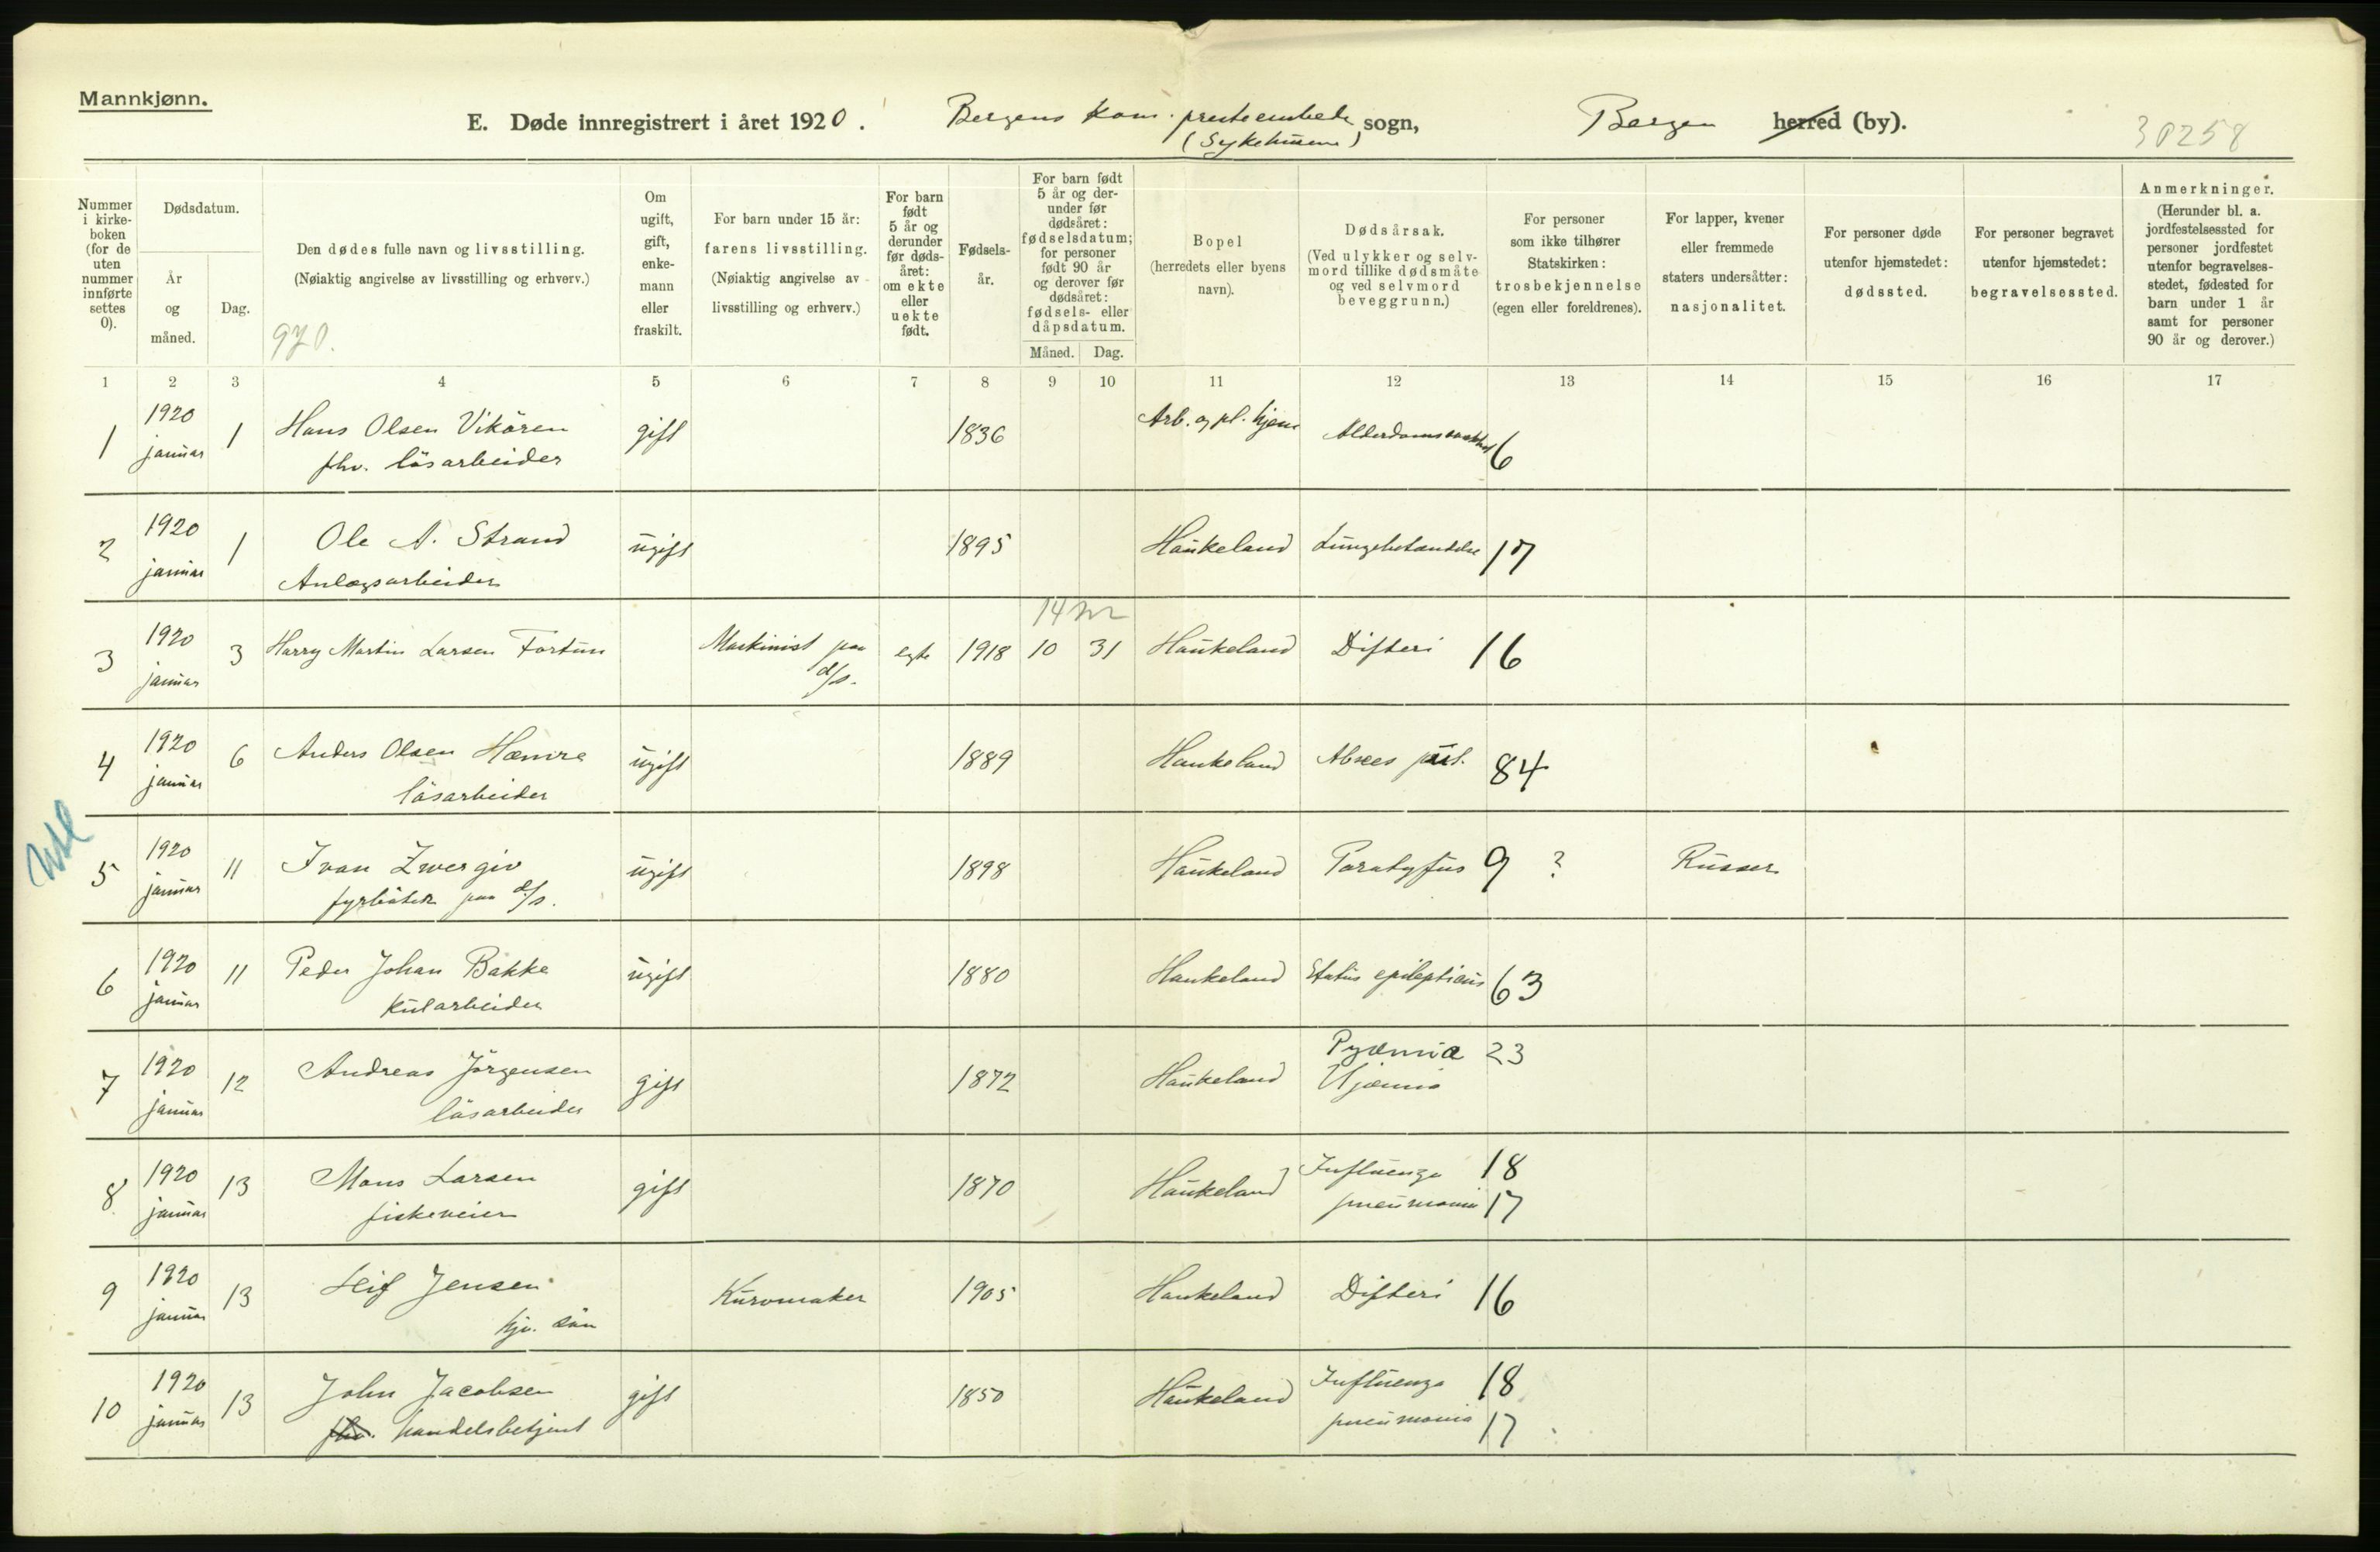 Mannkjønn.
E. Døde innregistrert i året 1920. Bergens kom. presteembede (Sykehusene) sogn, Bergen herred (by).
30258
Nummer i kirkeboken (for de uten nummer innførte settes 0).
Dødsdatum.
År og måned.
Dag.
Den dødes fulle navn og livsstilling.
(Nøiaktig angivelse av livsstilling og erhverv.)
970.
Om ugift, gift, enkemann eller fraskilt.
For barn under 15 år: farens livsstilling.
(Nøiaktig angivelse av livsstilling og erhverv.)
For barn født 5 år og derunder før dødsåret: om ekte eller uekte født.
Fødselsår.
For barn født 5 år og derunder før dødsåret: fødselsdatum; for personer født 90 år og derover før dødsåret: fødsels- eller dåpsdatum.
Måned. Dag.
Bopel
(herredets eller byens navn).
Dødsårsak.
(Ved ulykker og selvmord tillike dødsmåte og ved selvmord beveggrunn.)
For personer som ikke tilhører Statskirken: trosbekjennelse
(egen eller foreldrenes).
For lapper, kvener eller fremmede staters undersåtter: nasjonalitet.
For personer døde utenfor hjemstedet: dødssted.
For personer begravet utenfor hjemstedet: begravelsessted.
Anmerkninger.
(Herunder bl. a. jordfestelsessted for personer jordfestet utenfor begravelsesstedet, fødested for barn under 1 år samt for personer 90 år og derover.)
1 2 3 4 5 6 7 8 9 10 11 12 13 14 15 16 17
1 1920 januar 1 Hans Olsen Vikören gift 1836 Arb. og pl. hjem Alderdomssvakhet 6
fhv. lösarbeider
2 1920 januar 1 Ole A. Strand ugift 1895 Haukeland Lungebetændelse 17
Anlægsarbeider
14 m
3 1920 januar 3 Harry Martin Larsen Fortun Maskinist paa d/s. egte 1918 10 31 Haukeland Difteri 16
4 1920 januar 6 Anders Olsen ugift 1889 Haukeland Absces pul. 84
lösarbeider
5 1920 januar 11 Ivan Zwergiv ugift 1898 Haukeland Paratyfus 9 ? Russer
fyrböter paa d/s.
6 1920 januar 11 Peder Johan Bakke ugift 1880 Haukeland Status epilepticus 63
kularbeider
7 1920 januar 12 Andreas Jörgensen gift 1872 Haukeland Pyæmia 23
lösarbeider
8 1920 januar 13 Mons Larsen gift 1870 Haukeland Influenza 18
fiskeveier pneumonia 17
9 1920 januar 13 Leif Jensen Kurvmaker 1905 Haukeland Difteri 16
hjv. sön
10 1920 januar 13 John Jacobsen gift 1850 Haukeland Influenza 18
fhv. handelsbetjent pneumonia 17